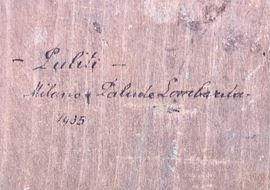 - Puliti -
Milano - Palude Lombarda -
1935